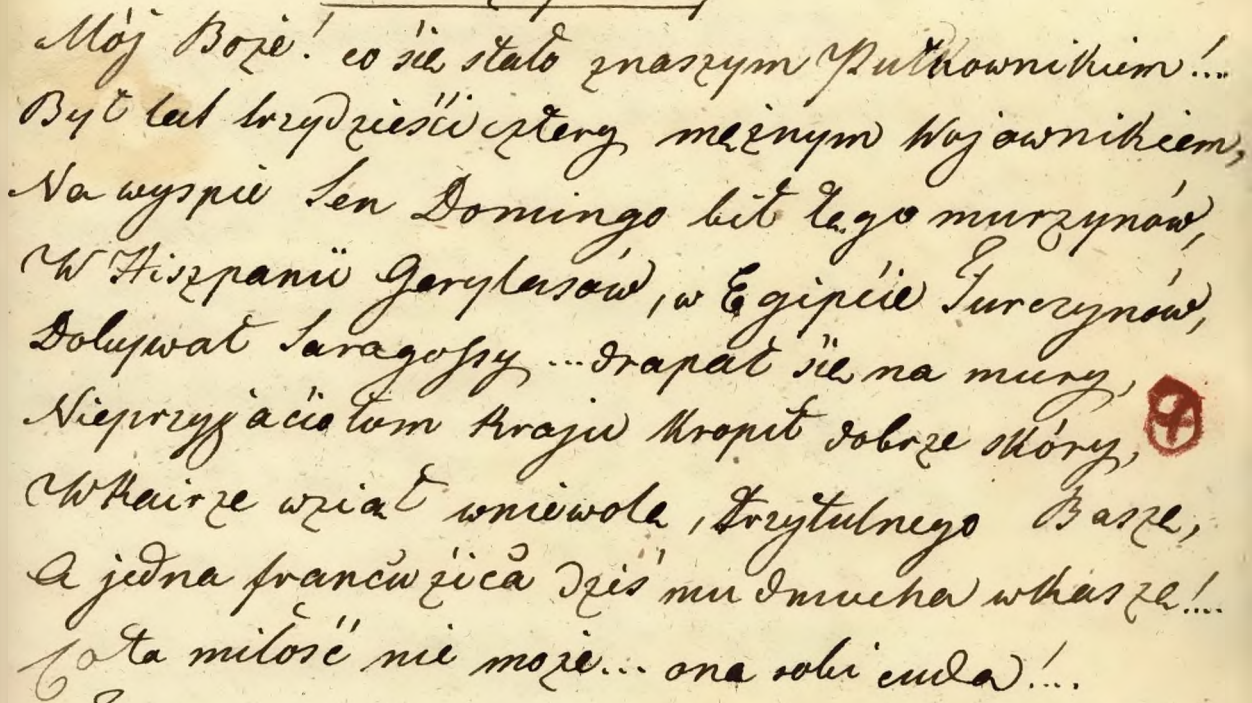 Mój Boże! co się stało znaszym Pułkownikiem!..
Był lat trzydzieści cztery mężnym Wojownikiem,
Na wyspie Sen Domingo bił tęgo murzynów,
W Hiszpanii Gerylasów, w Egipcie Turczynów,
Dobywał Saragossy ... drapał się na mury,
Nieprzyjaciołom Kraju Kropił dobrze skóry,
WKairze wziął wniewolę, trzytulnego Baszę,
A jedna francuzica dziś mu dmucha wkaszę!...
Co ta miłość nie może... ona robi cuda!...